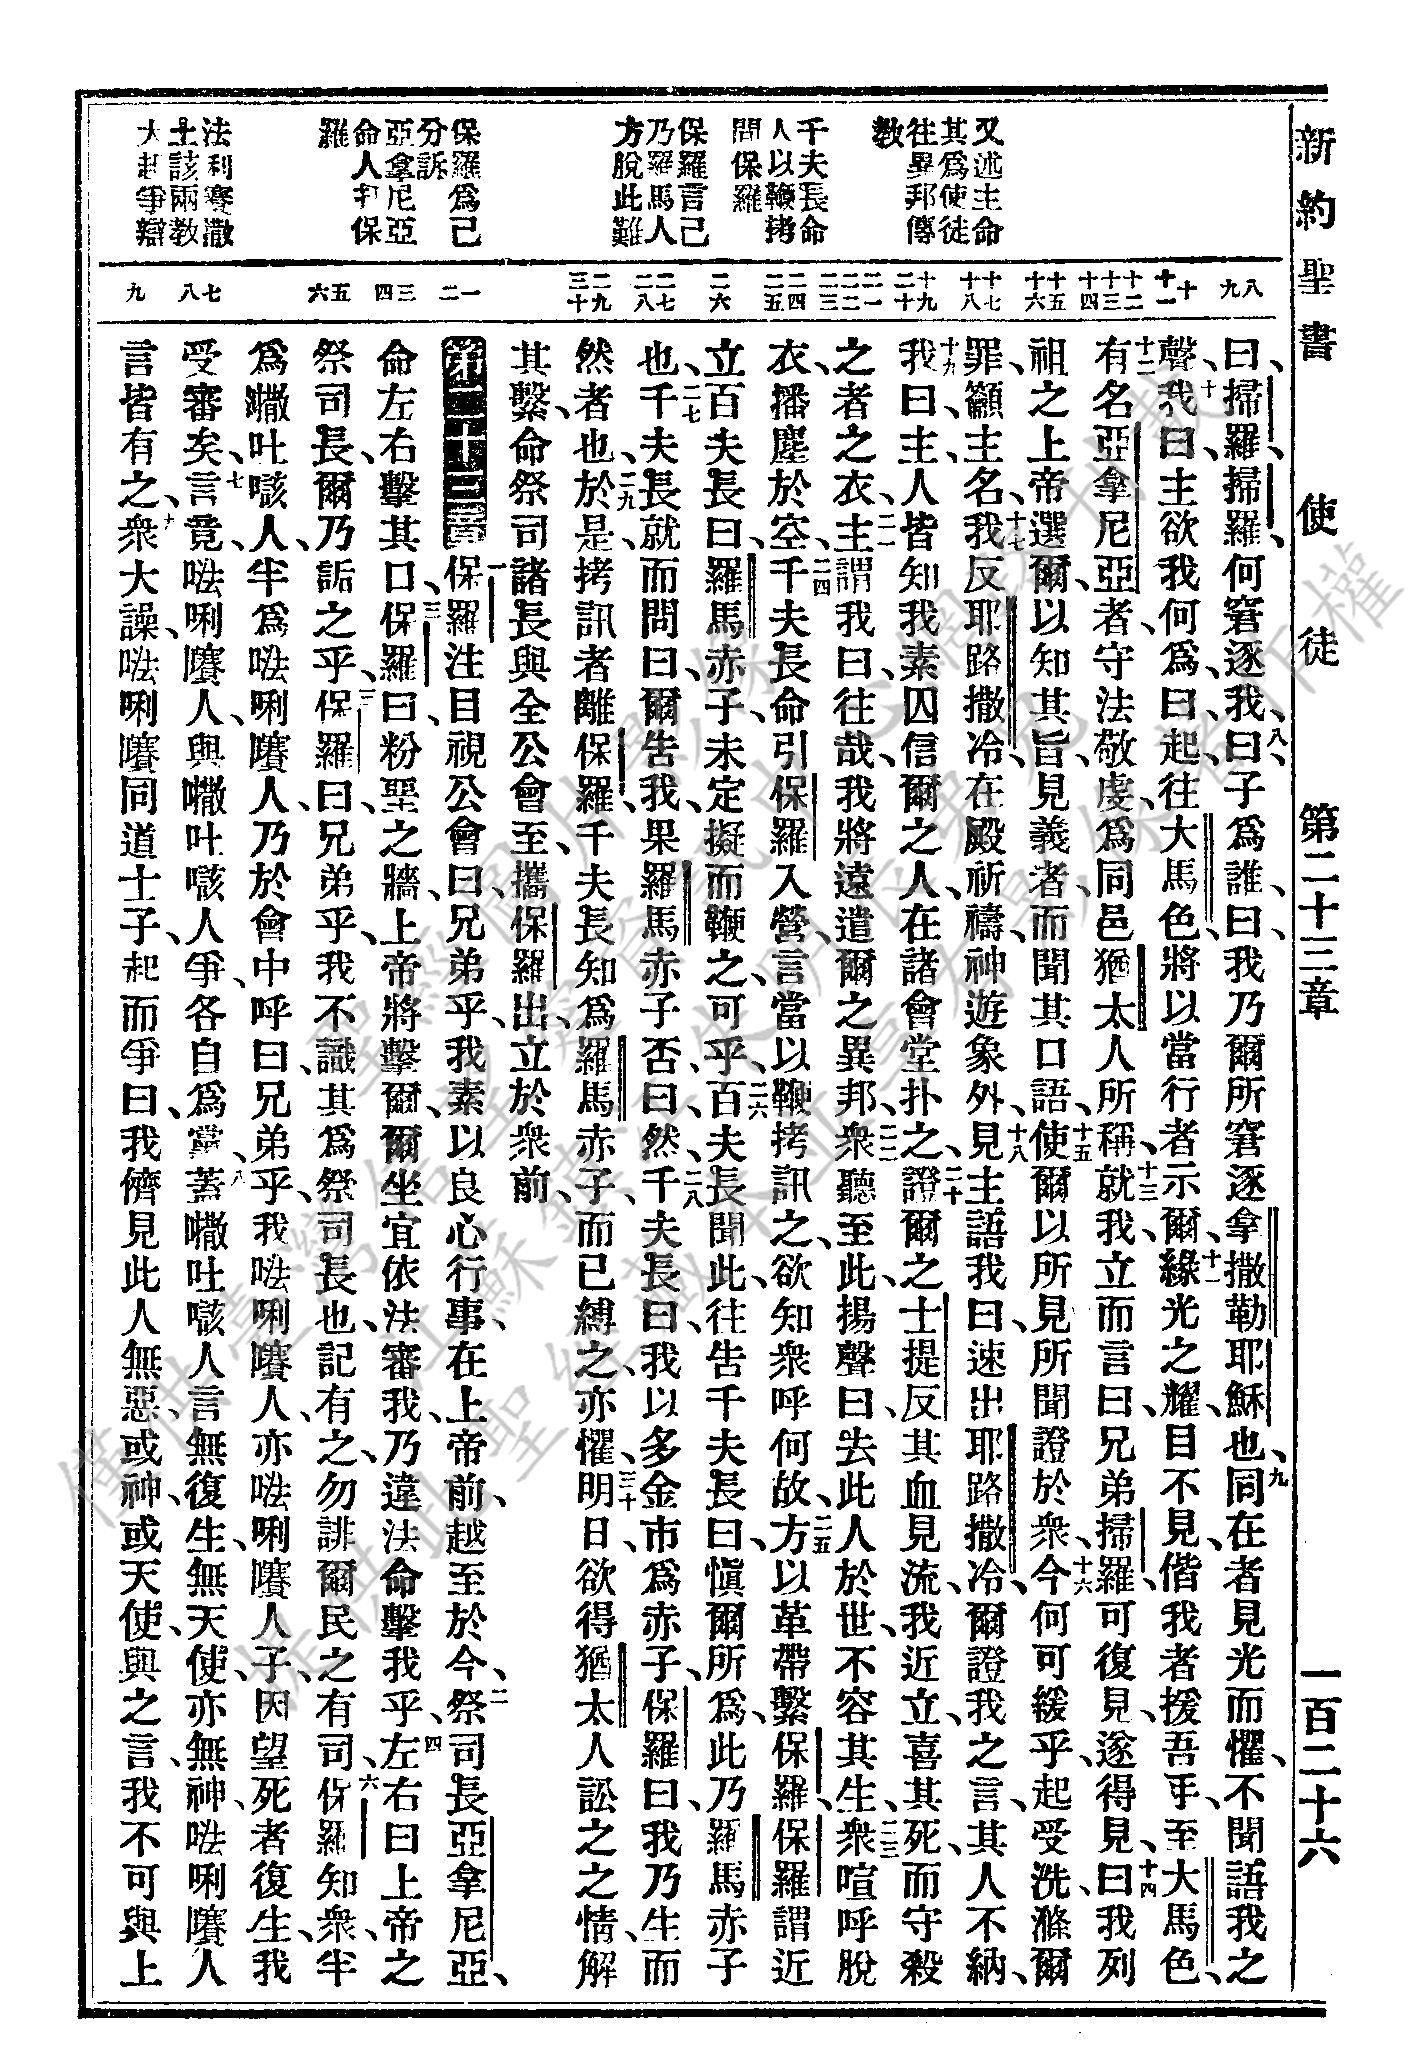 新約聖書 使徒 第二十三章 一百二十六
又述主命
其爲使徒
往異邦傳
教
千夫長命
人以鞭拷
問保羅
保羅言己
乃羅馬人
方脫此難
保羅爲己
分訴
亞拿尼亞
命人扑保
羅
法利賽撒
土該兩教
大起爭辯
八 九 十 十一 十二 十三 十四 十五 十六 十七 十八 十九 二十 二一 二二 二三 二四 二五 二六 二七 二八 二九 三十 一 二 三 四 五 六 七 八 九
曰、掃羅、掃羅、何窘逐我、八曰、子爲誰、曰、我乃爾所窘逐拿撒勒耶穌也、九同在者見光而懼、不聞語我之
聲、十我曰、主欲我何爲、曰、起、往大馬色、將以當行者示爾、十一緣光之耀、目不見、偕我者援吾手、至大馬色、
十二有名亞拿尼亞者、守法敬虔、爲同邑猶太人所稱、十三就我、立而言曰、兄弟掃羅、可復見、遂得見、十四曰、我列
祖之上帝選爾、以知其旨、見義者、而聞其口語、十五使爾以所見所聞、證於衆、十六今何可緩乎、起受洗、滌爾
罪、籲主名、十七我反耶路撒冷、在殿祈禱、神遊象外、十八見主語我曰、速出耶路撒冷、爾證我之言、其人不納、
十九我曰、主、人皆知我素囚信爾之人、在諸會堂扑之、二十證爾之士提反其血見流、我近立、喜其死、而守殺
之者之衣、二一主謂我曰、往哉、我將遠遣爾之異邦、二二衆聽至此、揚聲曰、去此人於世、不容其生、二三衆喧呼脫
衣、播塵於空、二四千夫長命引保羅入營、言當以鞭拷訊之、欲知衆呼何故、二五方以革帶繫保羅、保羅謂近
立百夫長曰、羅馬赤子、未定擬而鞭之可乎、二六百夫長聞此、往告千夫長曰、愼爾所爲、此乃羅馬赤子
也、二七千夫長就而問曰、爾告我、果羅馬赤子否、曰、然、二八千夫長曰、我以多金市爲赤子、保羅曰、我乃生而
然者也、二九於是拷訊者離保羅、千夫長知爲羅馬赤子、而已縛之、亦懼、三十明日、欲得猶太人訟之之情、解
其繫、命祭司諸長與全公會至、攜保羅出、立於衆前、
第二十三章 一保羅注目視公會曰、兄弟乎、我素以良心行事、在上帝前、越至於今、二祭司長亞拿尼亞、
命左右擊其口、三保羅曰、粉堊之牆、上帝將擊爾、爾坐宜依法審我、乃違法命擊我乎、四左右曰、上帝之
祭司長、爾乃詬之乎、五保羅曰、兄弟乎、我不識其爲祭司長也、記有之、勿誹爾民之有司、六保羅知衆、半
爲㘔吐㖡人、半爲𠵽唎㘔人、乃於會中呼曰、兄弟乎、我𠵽唎㘔人、亦𠵽唎㘔人子、因望死者復生、我
受審矣、七言竟、𠵽唎㘔人、與㘔吐㖡人爭、各自爲黨、八蓋㘔吐㖡人言無復生、無天使、亦無神、𠵽唎㘔人
言皆有之、九衆大譟、𠵽唎㘔同道士子、起而爭曰、我儕見此人無惡、或神、或天使、與之言、我不可與上